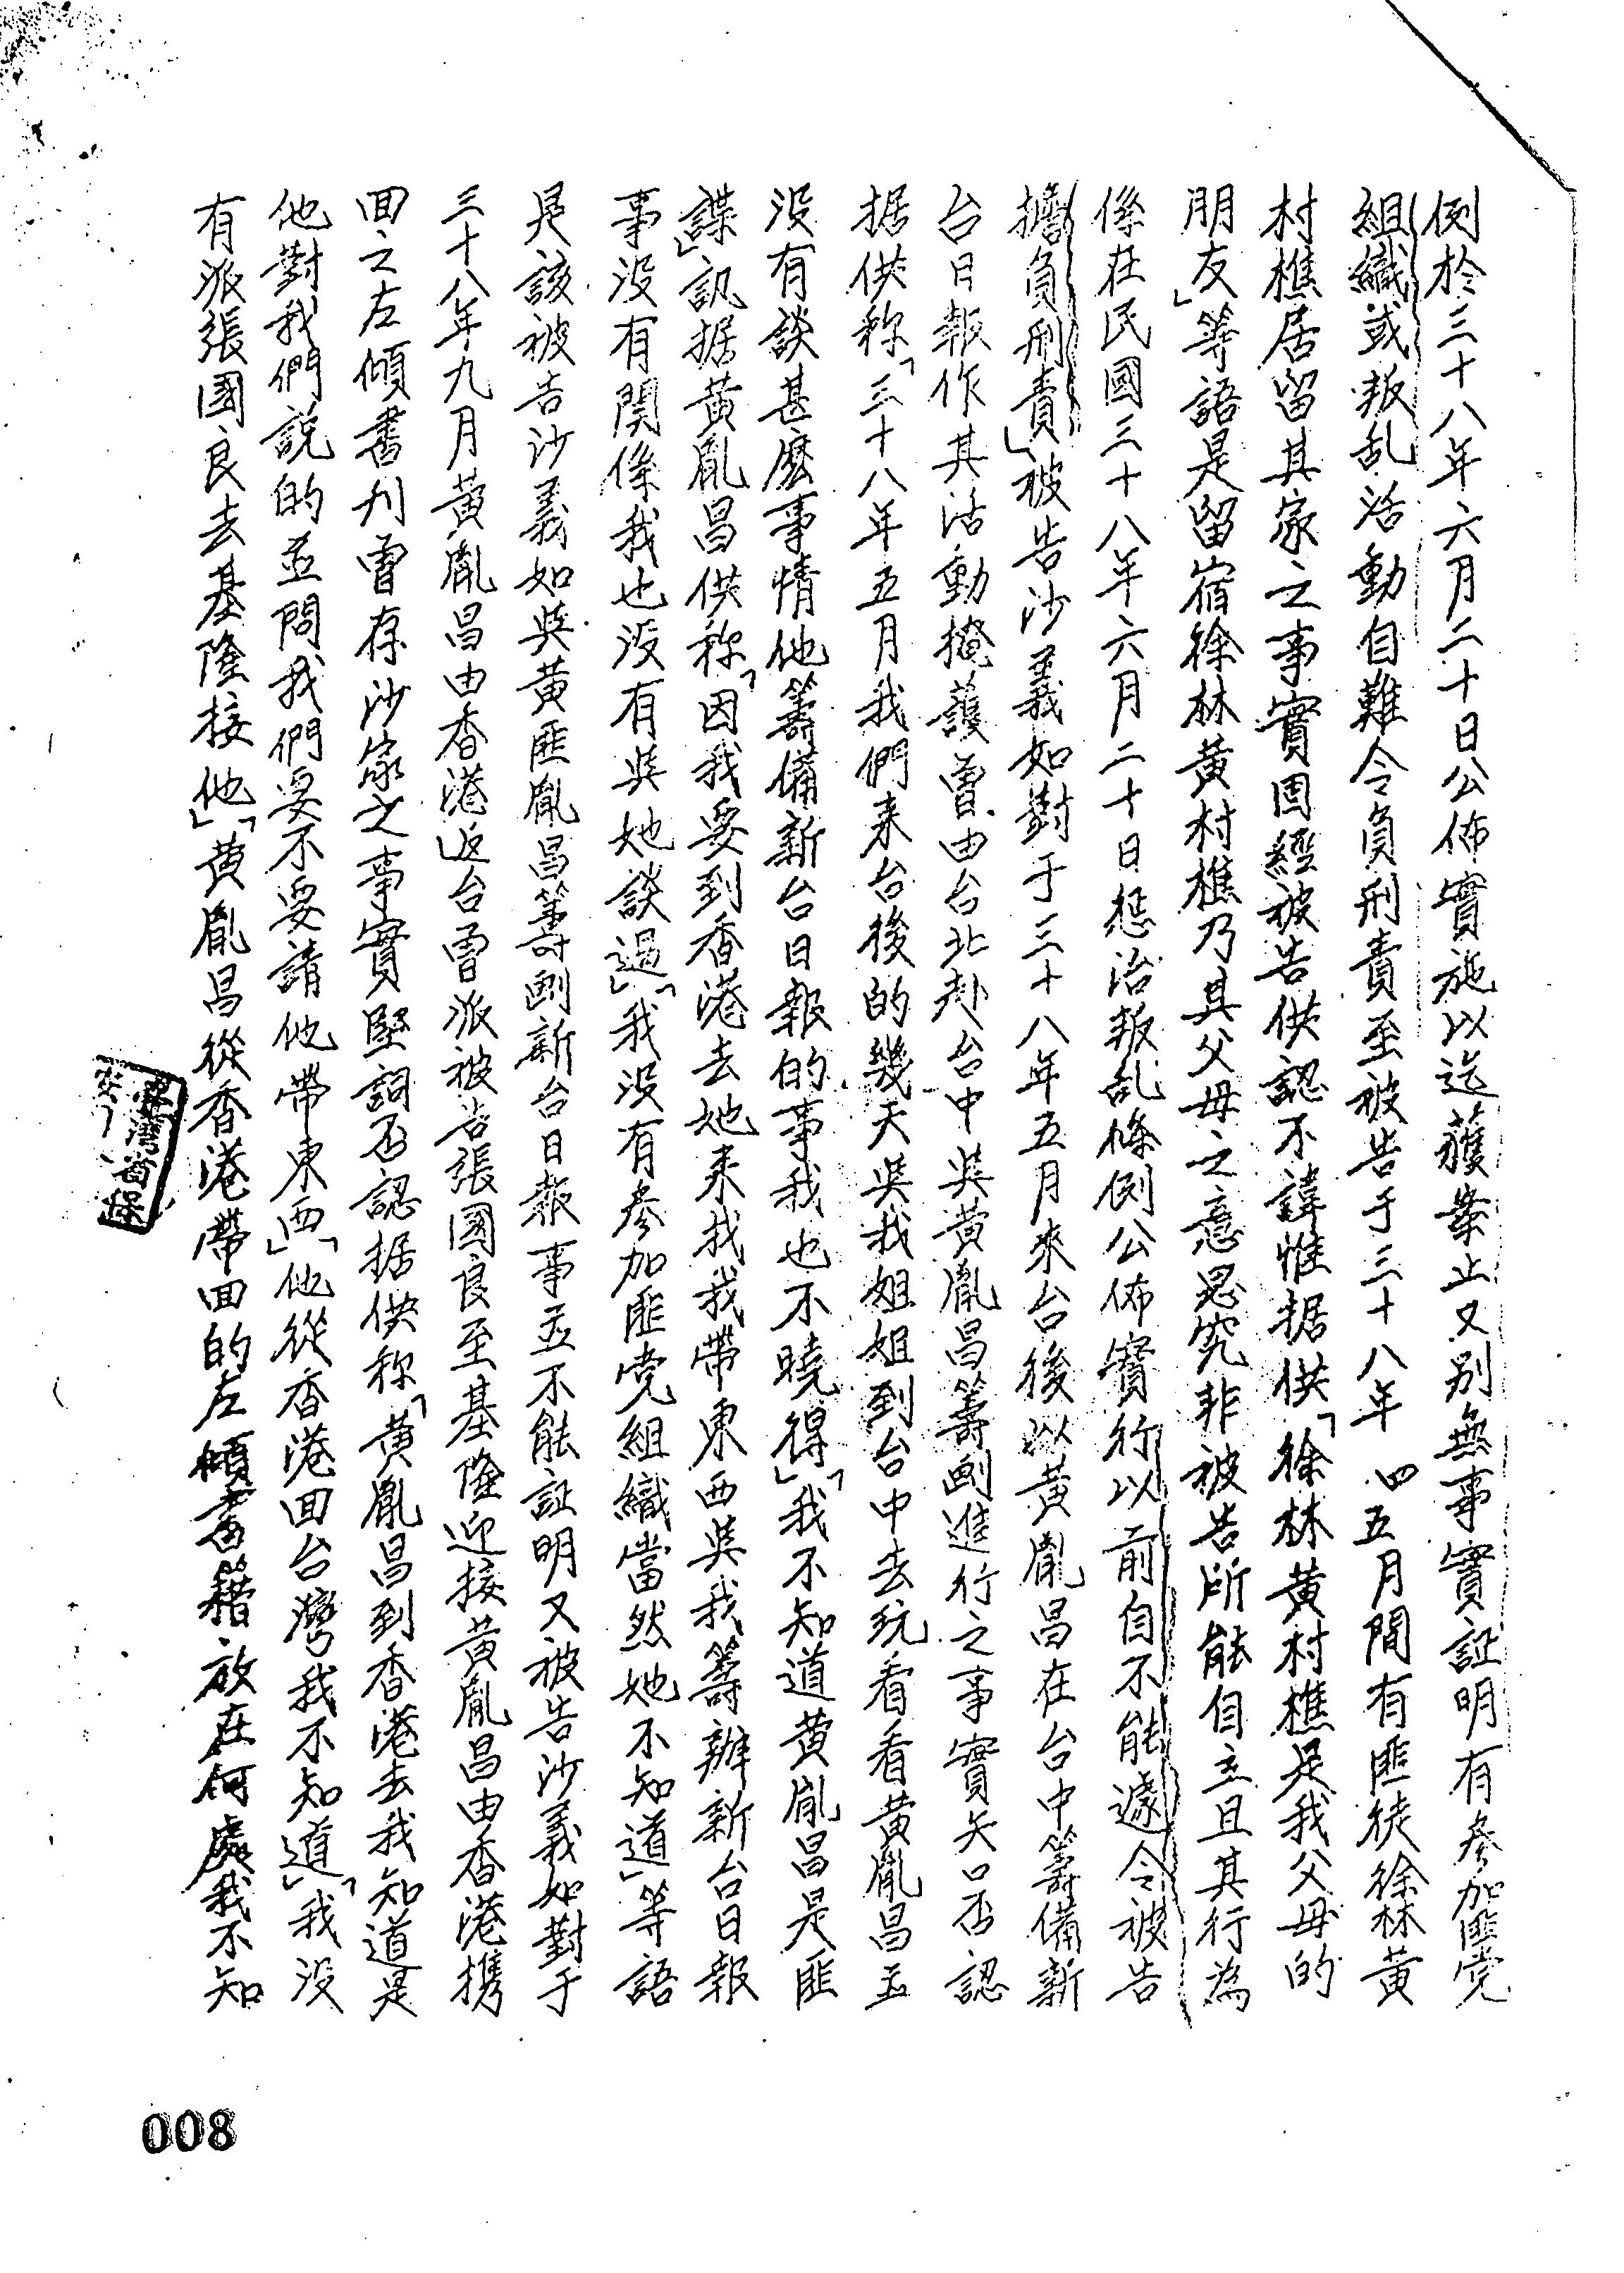 例於三十八年六月二十日公佈實施以迄獲案止又別無事實証明有參加匪党
組織或叛乱活動自難令負刑責至被告于三十八年四五月間有匪徒徐林黃
村樵居留其家之事實固經被告供認不諱惟据供「徐林黃村樵是我父母的
朋友」等語是留宿徐林黃村樵乃其父母之意思究非被告所能自主且其行為
係在民國三十八年六月二十日惩治叛乱條例公佈實行以前自不能遽令被告
擔負刑責」被告沙義如對于三十八年五月來台後以黃胤昌在台中籌備新
台日報作其活動掩護曾由台北赴台中吳黃胤昌籌劃進行之事實矢口否認
据供称「三十八年五月我們来台後的幾天吳我姐姐到台中去玩看看黃胤昌並
没有談甚麼事情他籌備新台日報的事我也不曉得」「我不知道黃胤昌是匪
諜」訊据黃胤昌供称「因我要到香港去她来找我帶東西吳我籌辦新台日報
事没有関係我也没有吳她談過」「我没有參加匪党組織當然她不知道」等語
是該被告沙義如吳黃匪胤昌籌劃新台日報事並不能証明又被告沙義如對于
三十八年九月黃胤昌由香港返台曾派被告張國良至基隆迎接黃胤昌由香港携
回之左傾書刋曾存沙家之事實堅詞否認据供称「黃胤昌到香港去我知道是
他對我們説的並問我們要不要請他帶東西」「他從香港回台灣我不知道」「我没
有派張國良去基隆接他」「黃胤昌從香港帶回的左傾書籍放在何處我不知
台灣省保
安
008